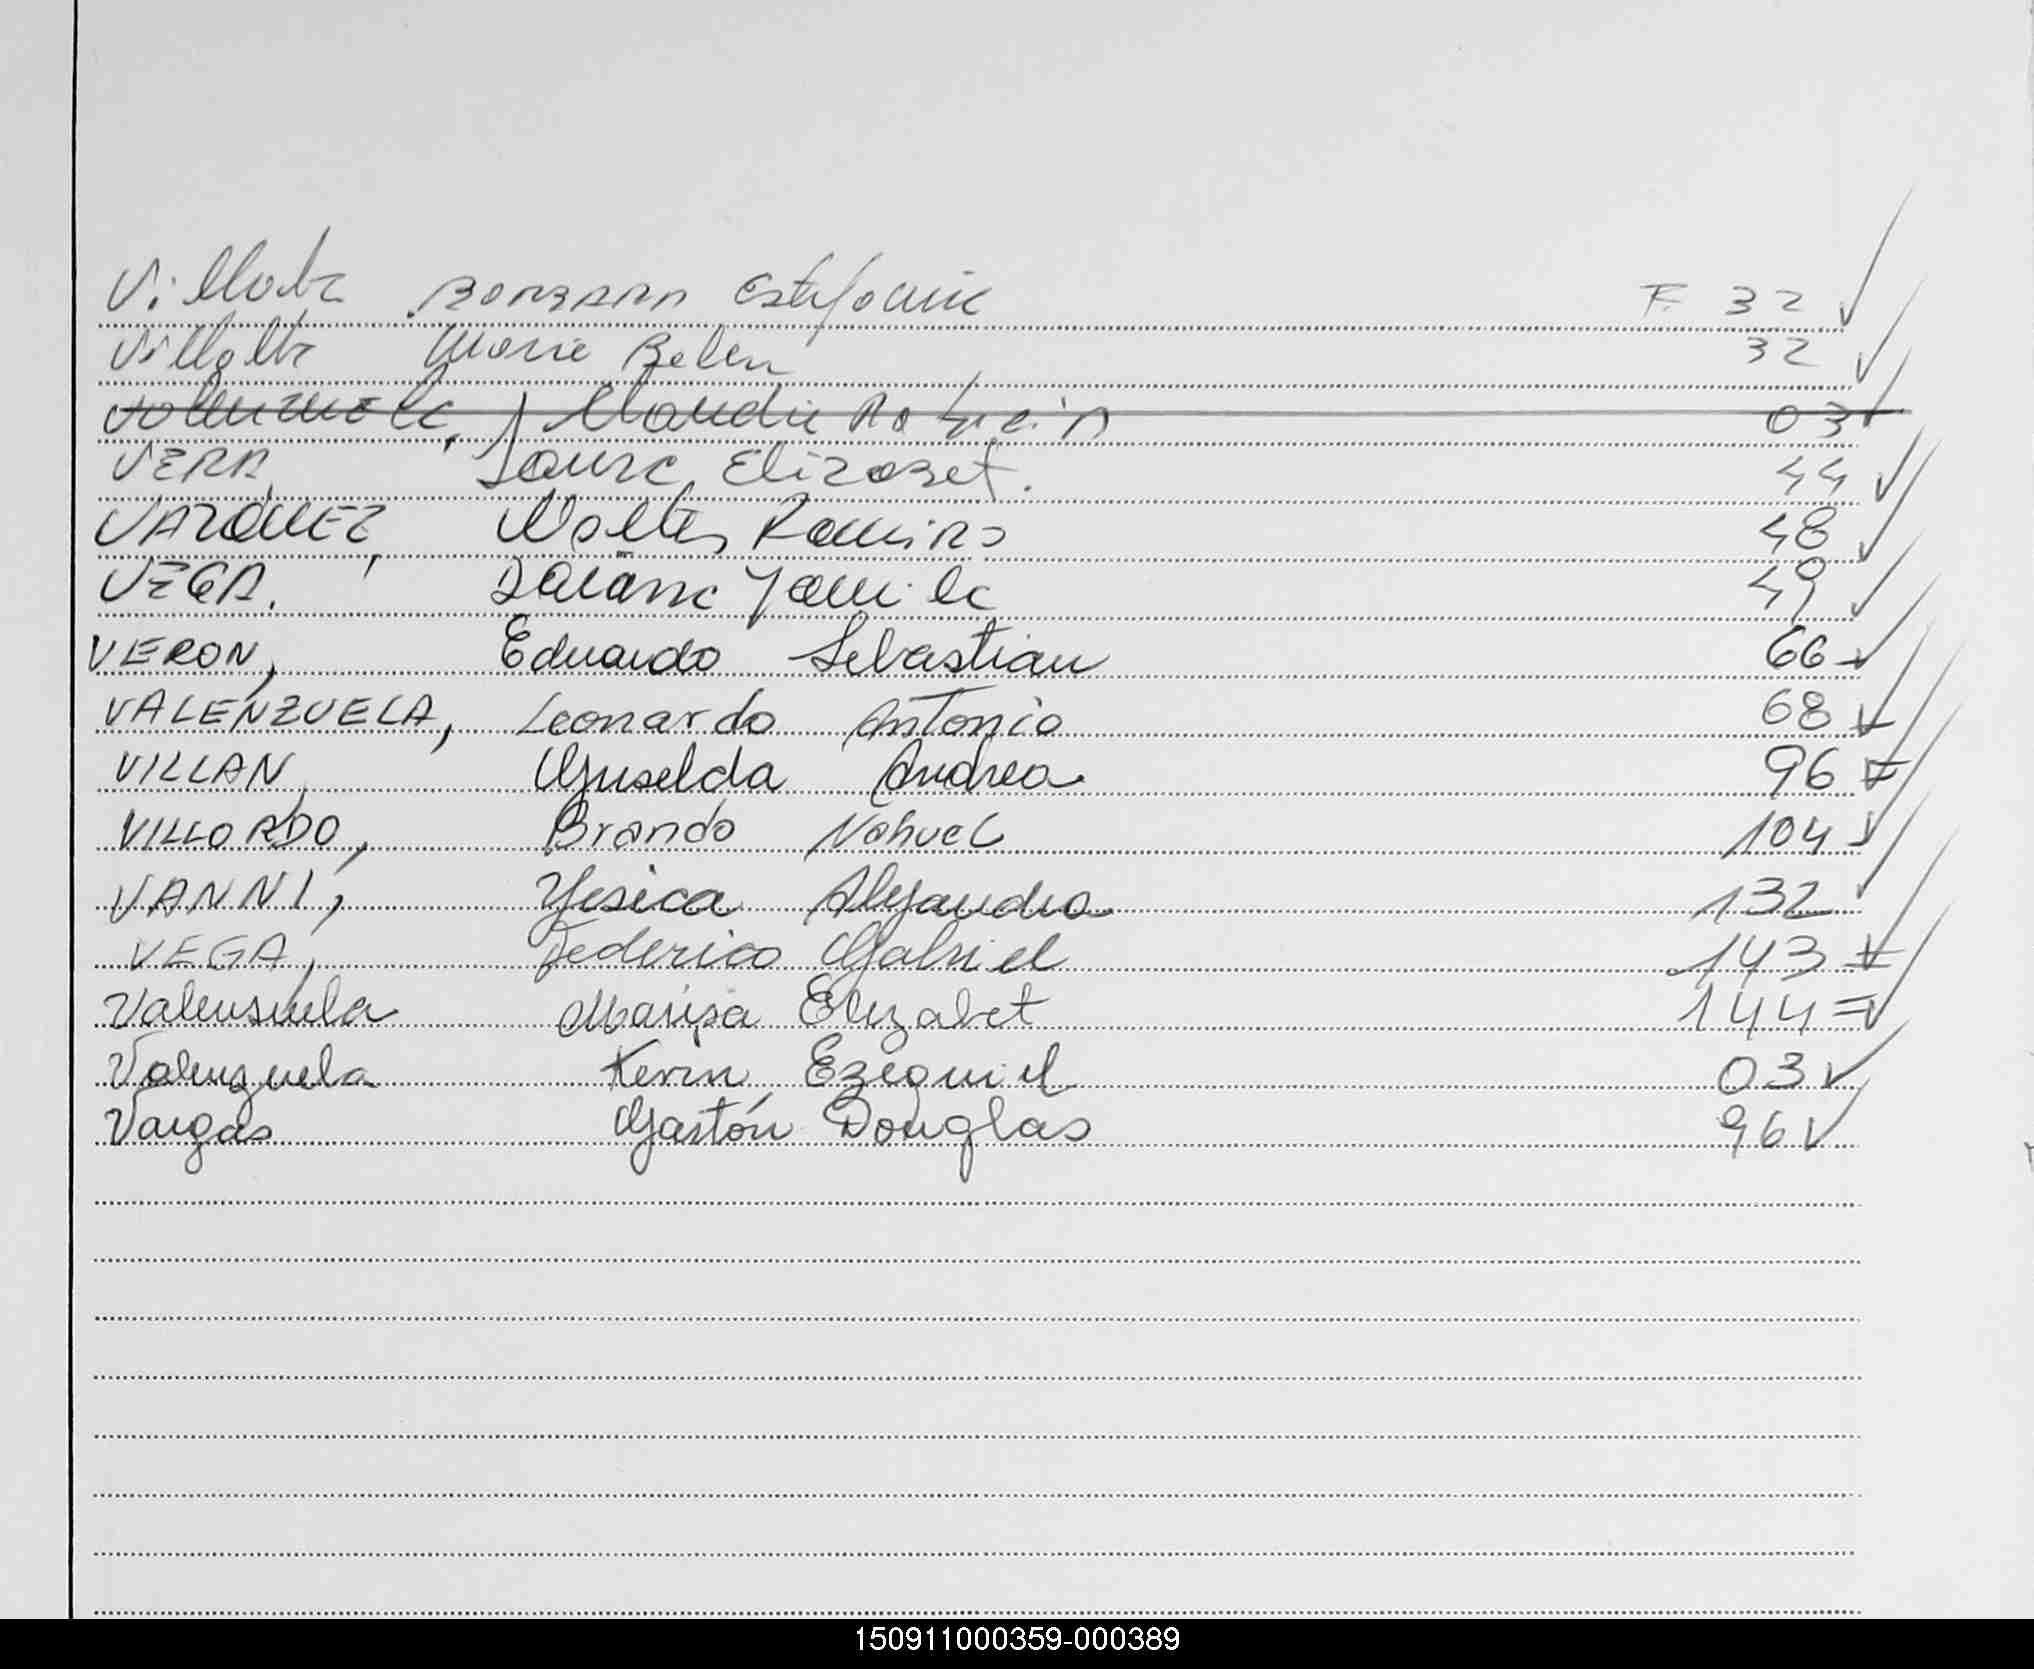 Villalta Romana Estefania F. 32 ✓
Villalta Maria Belen 32 ✓
Valenzuela, Claudia 03 ✓
VERA, Laura Elizabet. 44 ✓
VAZQUEZ, Walter Ramiro 48 ✓
VEGA. Daiana Yamila 49 ✓
VERON, Eduardo Sebastian 66 ✓
VALENZUELA, Leonardo Antonio 68 ✓
VILLAN, Griselda Andrea 96 ✓
VILLORDO, Brando Nahuel 104 ✓
VANNI, Yesica Alejandra 132 ✓
VEGA, Federico Gabriel 143 ✓
Valensuela Marisa Elizabet 144 = ✓
Valenzuela Kevin Ezequiel 03 ✓
Vargas Gastón Douglas 96 ✓
150911000359-000389